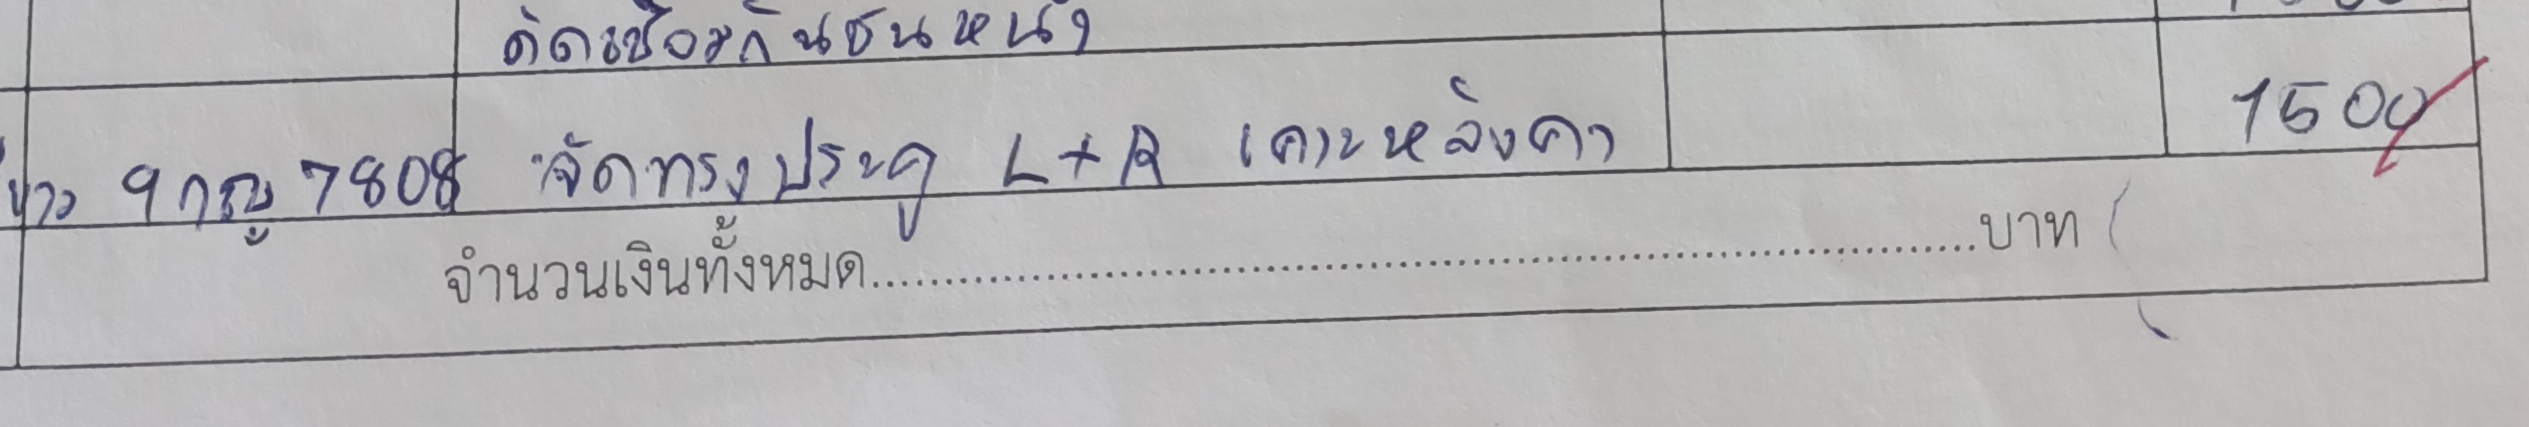 ดัดเชื่อมกันชนหน้า
ขาว 9กญ 7808 จัดทรงประตู L+R เคาะหลังคา 1500
จำนวนเงินทั้งหมด..........บาท